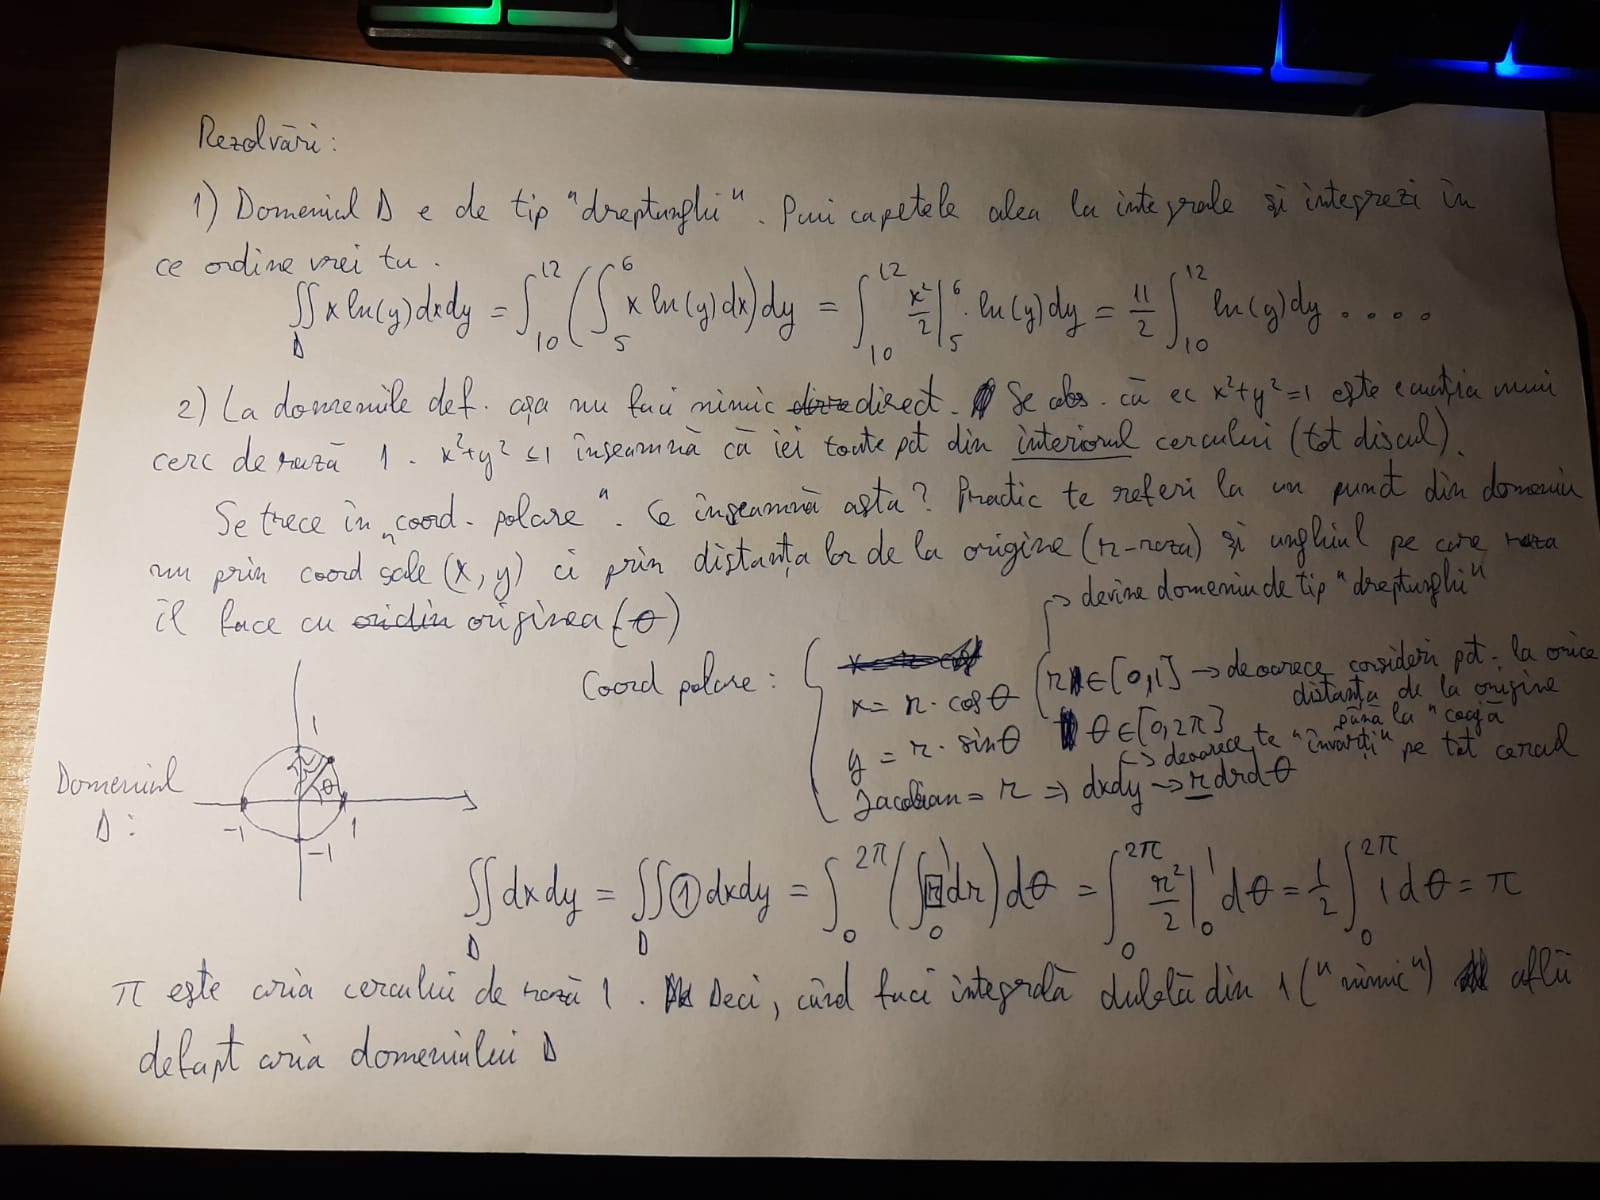 Rezolvări:
1) Domeniul D e de tip "dreptunghi". Pui capetele alea la integrale și integrezi în
ce ordine vrei tu.
∬_D x ln(y)dxdy = ∫_10^12 (∫_5^6 x ln(y)dx)dy = ∫_10^12 x²/2 |_5^6 · ln(y)dy = 11/2 ∫_10^12 ln(y)dy ....
2) La domeniile def. așa nu faci nimic direct. Se obs. că ec x²+y²=1 este ecuația unui
cerc de rază 1. x²+y² ≤1 înseamnă că iei toate pct din interiorul cercului (tot discul).
Se trece în "coord. polare". Ce înseamnă asta? Practic te referi la un punct din domeniu
nu prin coord sale (x, y) ci prin distanța lor de la origine (r-raza) și unghiul pe care raza
îl face cu originea (θ)
→ devine domeniu de tip "dreptunghi"
Coord polare:
x = r · cosθ
y = r · sinθ
Jacobian = r ⇒ dxdy → r drdθ
r ∈ [0,1] → deoarece consideri pct. la orice
distanța de la origine
până la "coajă"
θ ∈ [0,2π]
↳ deoarece te "învârți" pe tot cercul
Domeniul
D:
1
r
θ
-1
1
-1
∬_D dxdy = ∬_D 1 dxdy = ∫_0^2π (∫_0^1 r dr) dθ = ∫_0^2π r²/2 |_0^1 dθ = 1/2 ∫_0^2π 1 dθ = π
π este aria cercului de rază 1. Deci, când faci integrală dublă din 1 ("nimic") aflii
defapt aria domeniului D